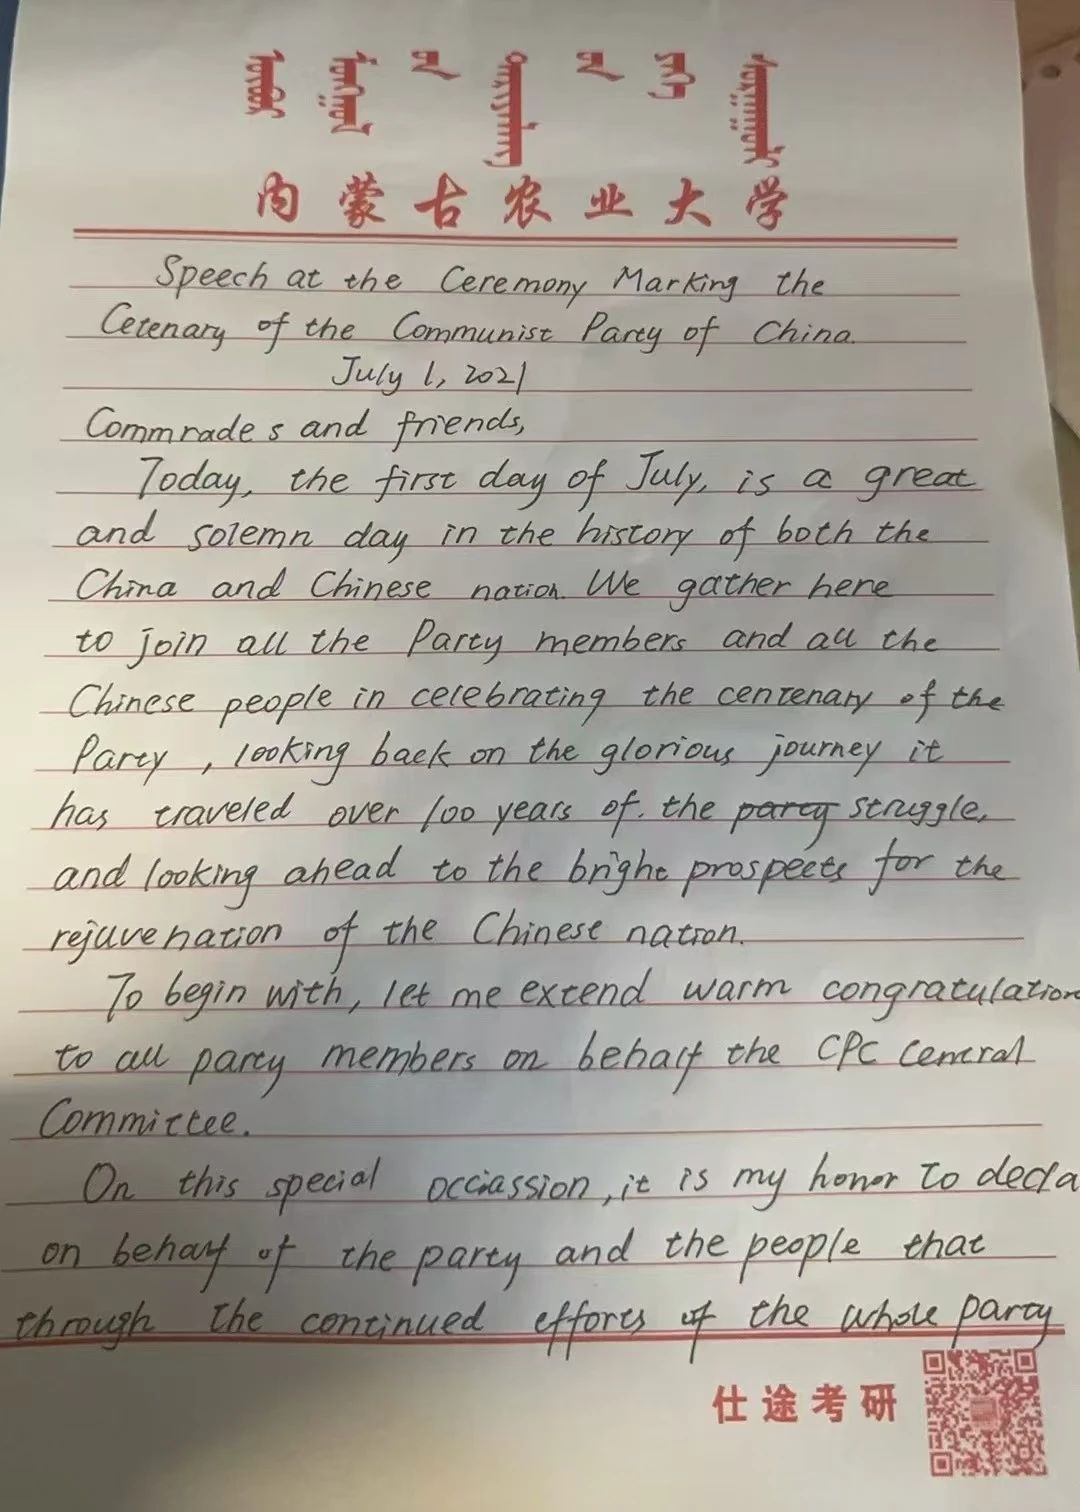 内蒙古农业大学
Speech at the Ceremony Marking the
Cetenary of the Communist Party of China.
July 1, 2021
Commrades and friends,
Today, the first day of July, is a great
and solemn day in the history of both the
China and Chinese nation. We gather here
to join all the Party members and all the
Chinese people in celebrating the centenary of the
Party, looking back on the glorious journey it
has traveled over 100 years of. the party struggle,
and looking ahead to the bright prospects for the
rejuvenation of the Chinese nation.
To begin with, let me extend warm congratulation
to all party members on behalf the CPC Central
Committee.
On this special occiassion, it is my honor to decla
on behalf of the party and the people that
through the continued efforts of the whole party
仕途考研